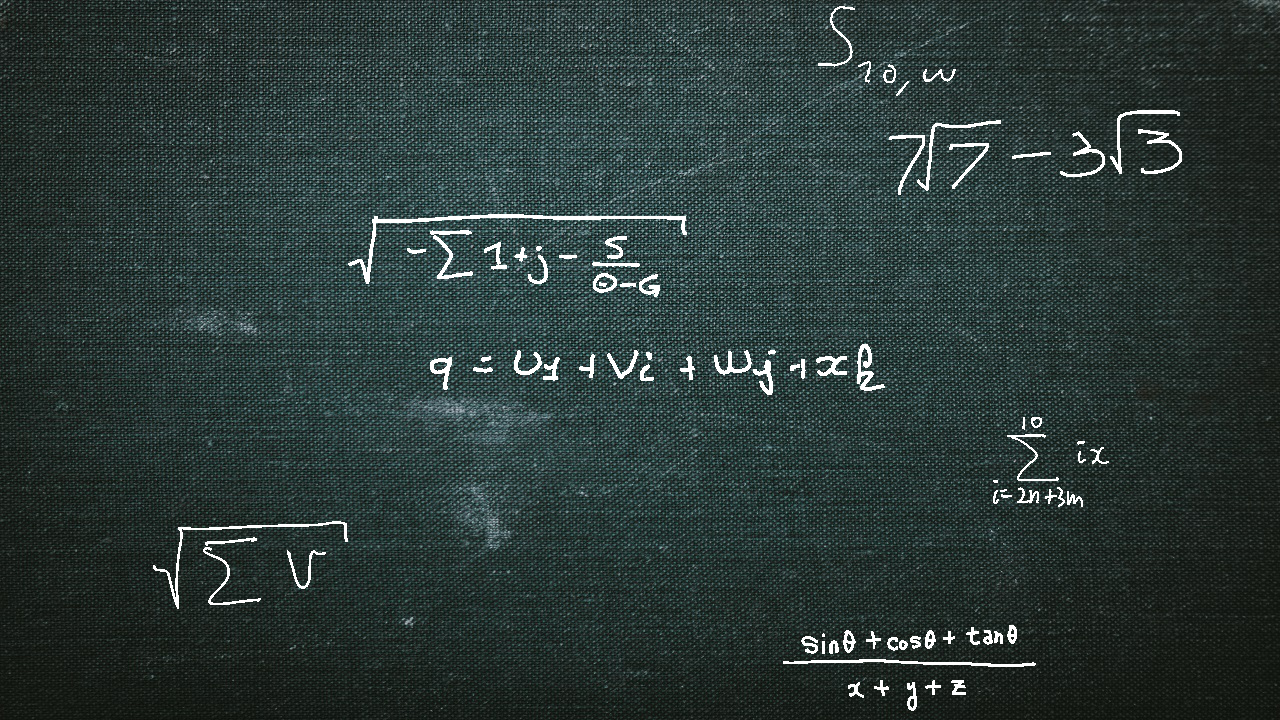 S_{10,w}
7√7 - 3√3
√(-∑ 1+j - S/(Θ-G))
q = U_1 + V_i + W_j + x k
∑_{i=2n+3m}^{10} ix
√(∑ V)
(sinθ + cosθ + tanθ)/(x + y + z)